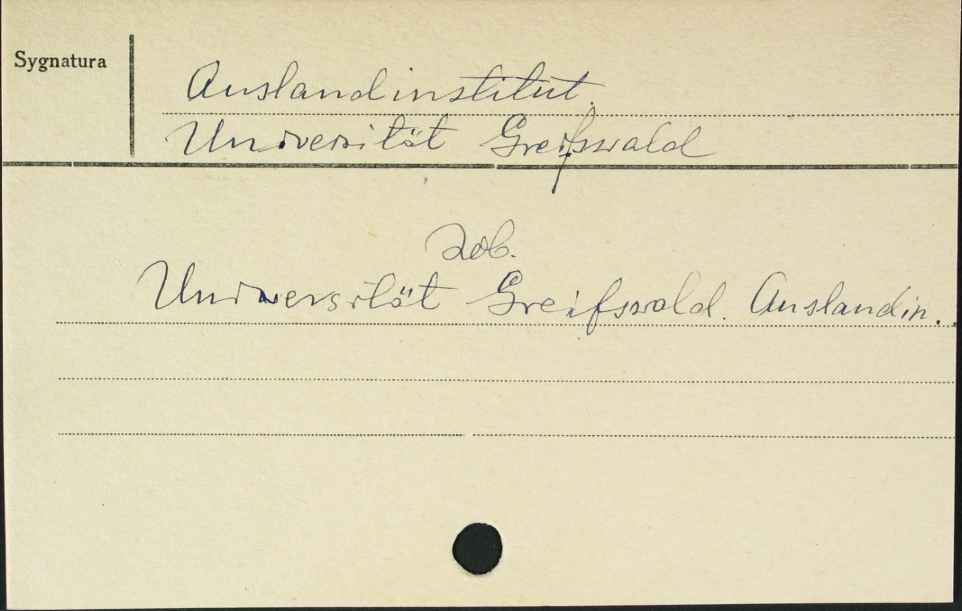 Sygnatura
Auslandinstitut.
Universität Greifswald
Zob.
Universität Greifswald. Auslandin.